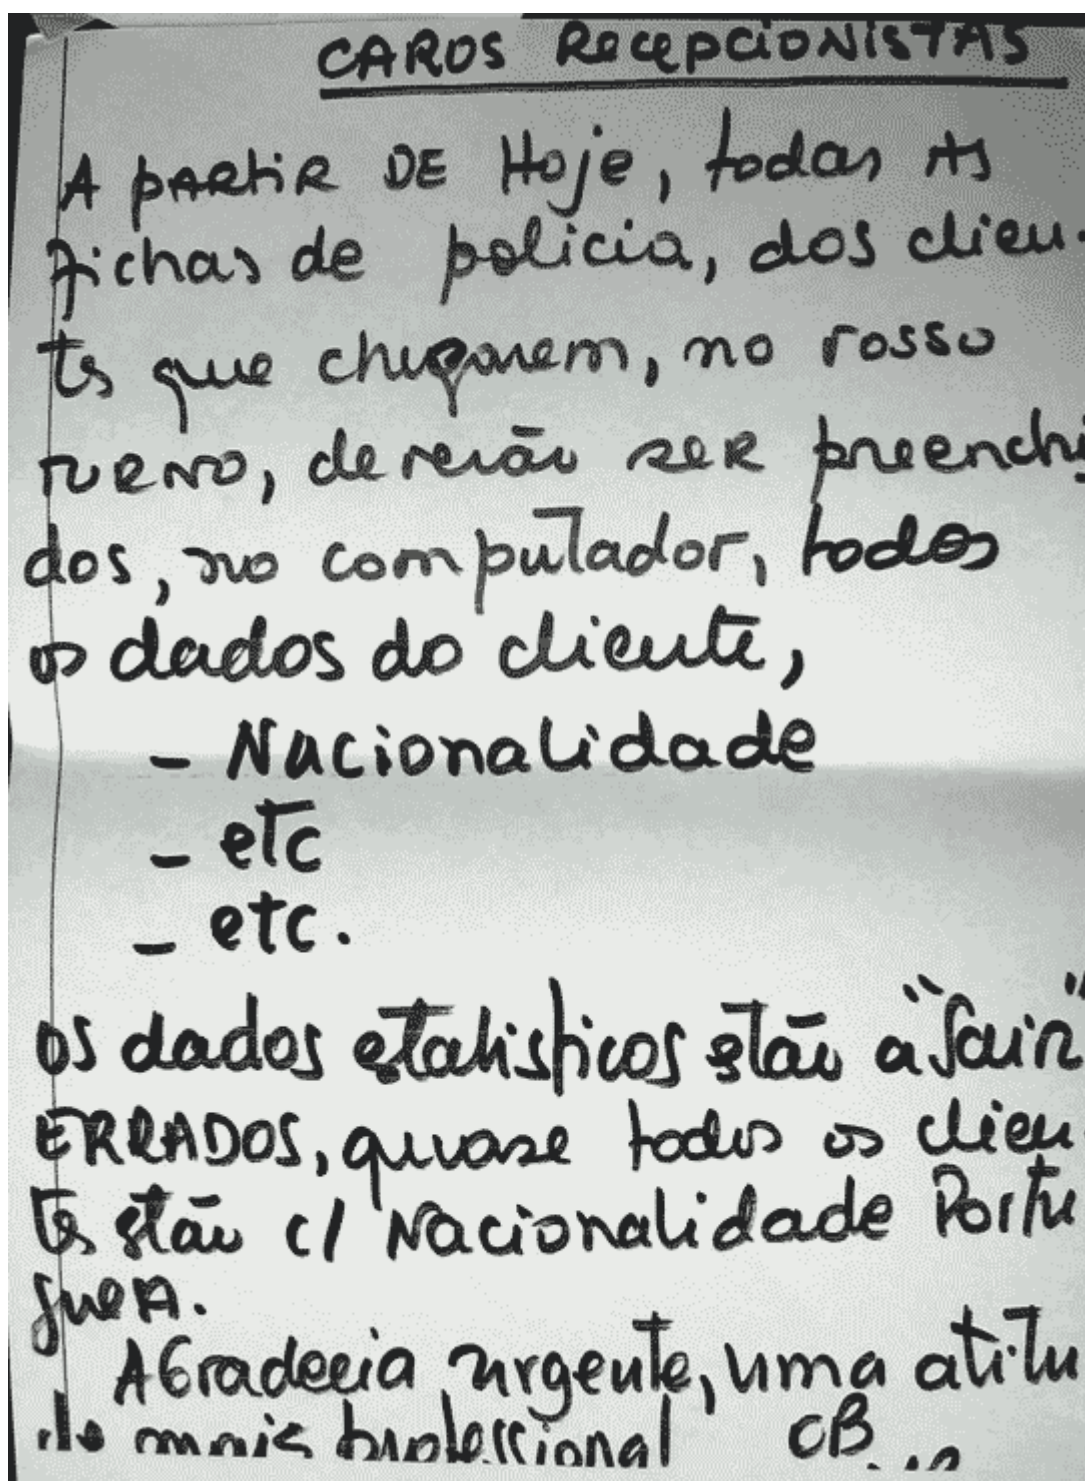 CAROS RecepcioNisTAS
A pARtiR DE Hoje, todas As
fichas de policia, dos clien-
tes que chegarem, no vosso
TURNO, deverão ser preenchi
dos, no computador, todos
os dados do cliente,
- Nacionalidade
- etc
- etc.
os dados estatisticos estão a "sair"
ERRADOS, quase todos os clien-
tes estão c/ Nacionalidade Portu
guesA.
AGradecia urgente, uma atitu
de mais profissional CB